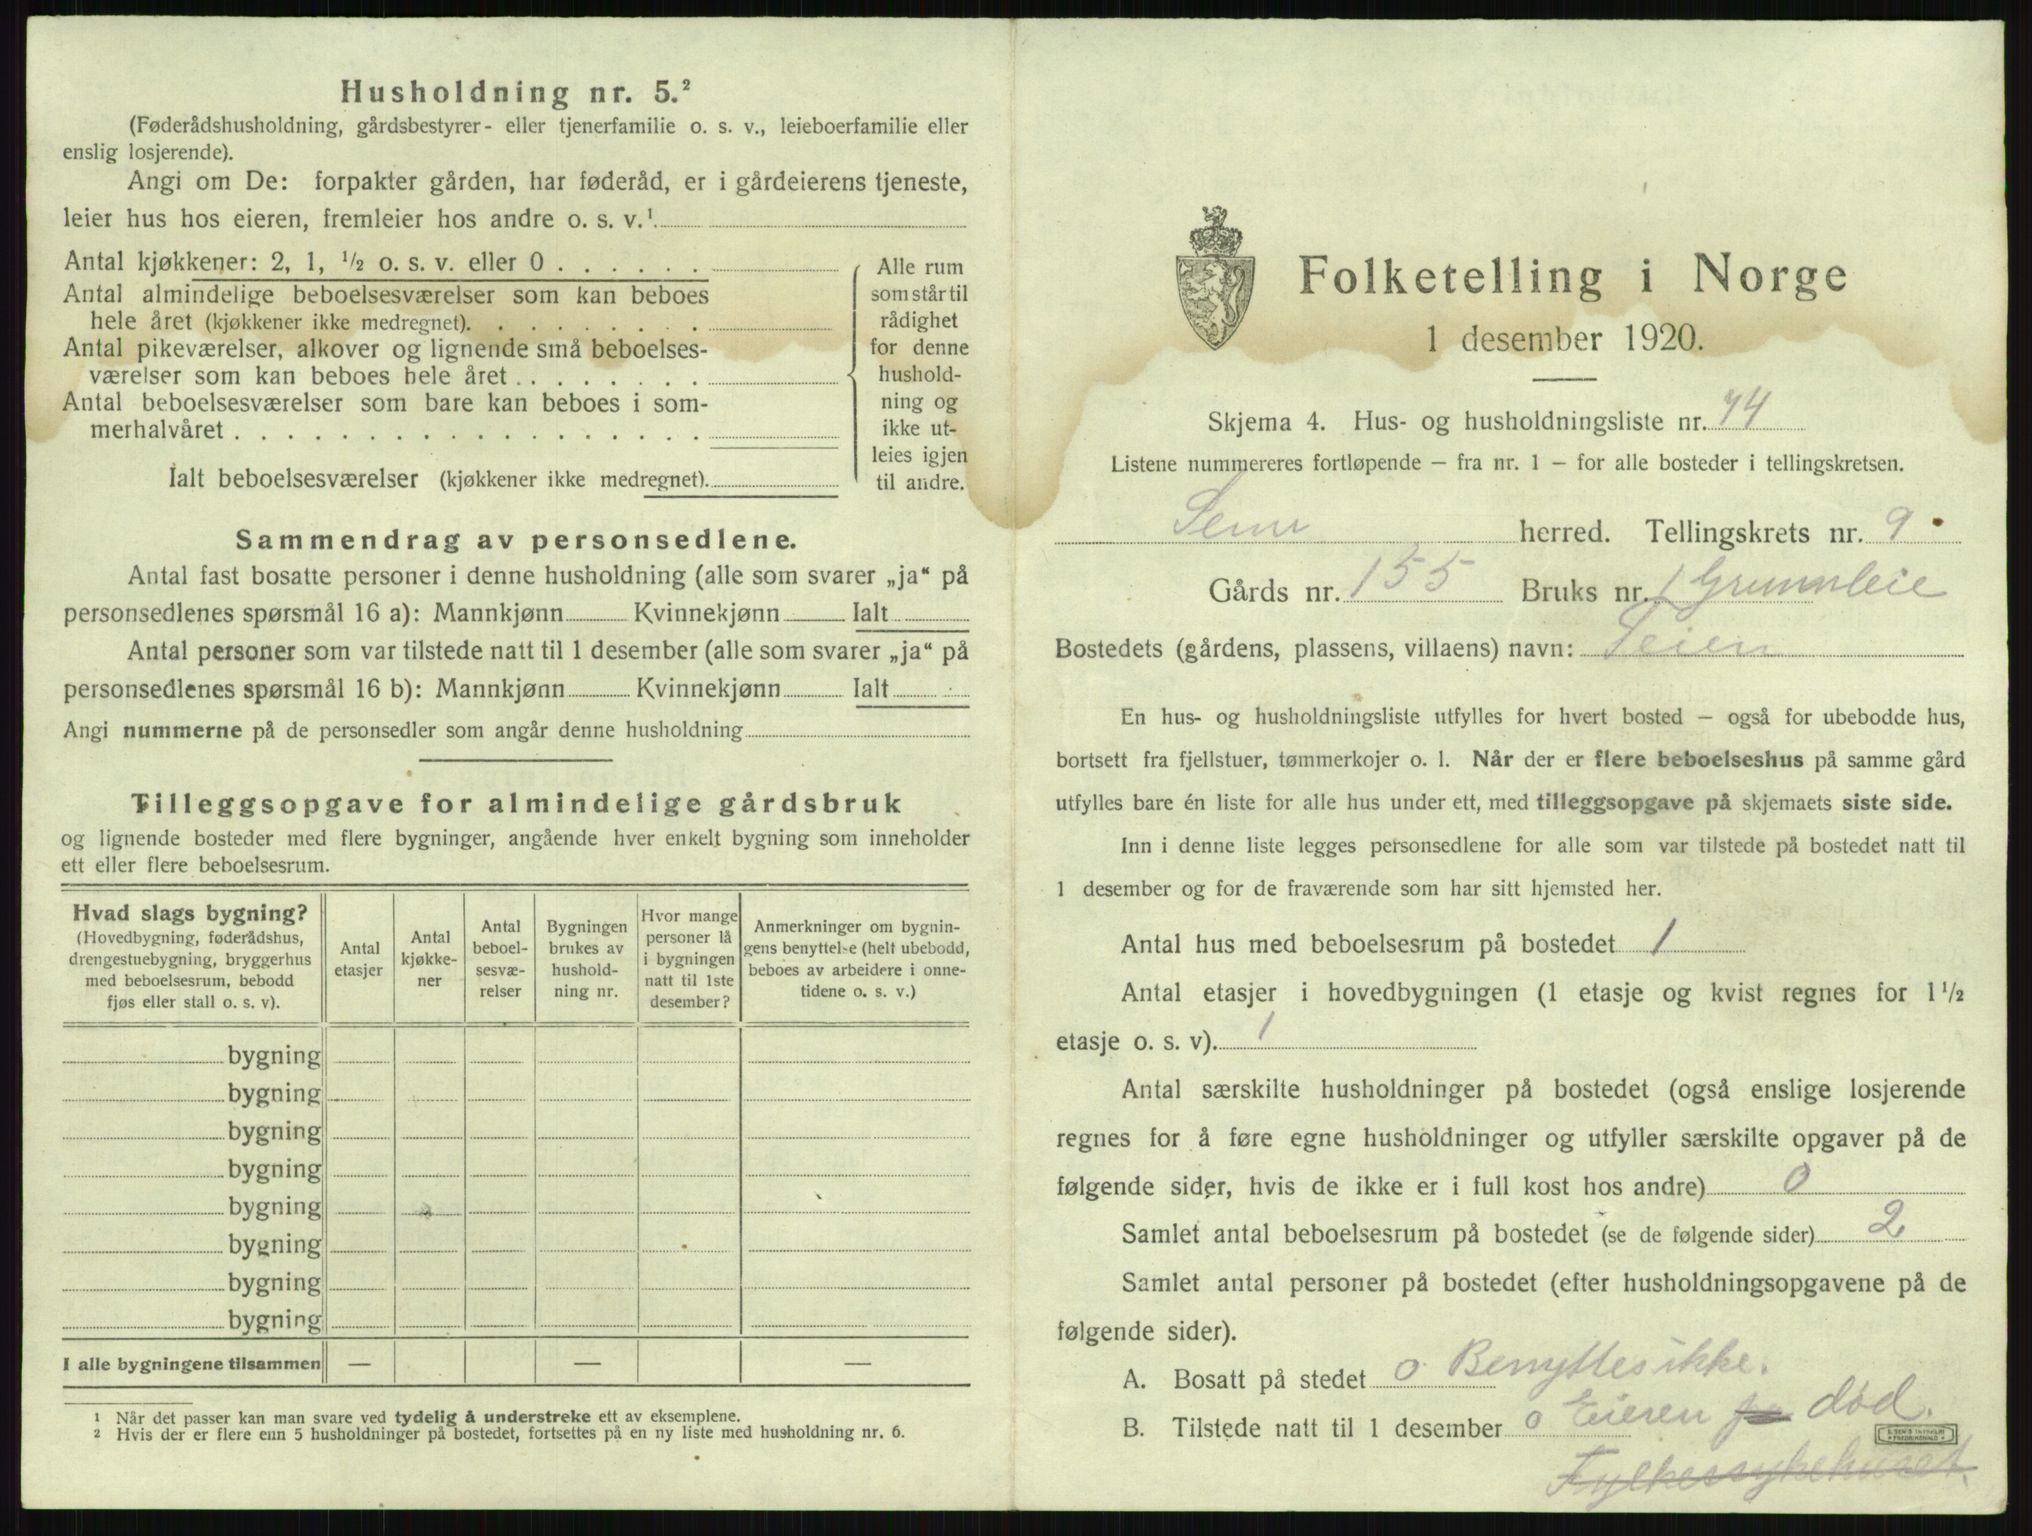 Husholdning nr. 5.²
(Føderådshusholdning, gårdsbestyrer- eller tjenerfamilie o. s. v., leieboerfamilie eller
enslig losjerende).
Angi om De: forpakter gården, har føderåd, er i gårdeierens tjeneste,
leier hus hos eieren, fremleier hos andre o. s. v.¹
Antal kjøkkener: 2, 1, ½ o. s. v. eller 0 . . . . . .
Antal almindelige beboelsesværelser som kan beboes
hele året (kjøkkener ikke medregnet). . . . . . . . .
Antal pikeværelser, alkover og lignende små beboelses-
værelser som kan beboes hele året . . . . . . . .
Antal beboelsesværelser som bare kan beboes i som-
merhalvåret . . . . . . . . . . . . . . . . . .
Ialt beboelsesværelser (kjøkkener ikke medregnet).
Alle rum
som står til
rådighet
for denne
hushold-
ning og
ikke ut-
leies igjen
til andre.
Sammendrag av personsedlene.
Antal fast bosatte personer i denne husholdning (alle som svarer „ja“ på
personsedlenes spørsmål 16 a): Mannkjønn Kvinnekjønn Ialt
Antal personer som var tilstede natt til 1 desember (alle som svarer „ja“ på
personsedlenes spørsmål 16 b): Mannkjønn Kvinnekjønn Ialt
Angi nummerne på de personsedler som angår denne husholdning
Tilleggsopgave for almindelige gårdsbruk
og lignende bosteder med flere bygninger, angående hver enkelt bygning som inneholder
ett eller flere beboelsesrum.
Hvad slags bygning?
(Hovedbygning, føderådshus,
drengestuebygning, bryggerhus
med beboelsesrum, bebodd
fjøs eller stall o. s. v).
Antal
etasjer
Antal
kjøkke-
ner
Antal
beboel-
sesvæ-
relser
Bygningen
brukes av
hushold-
ning nr.
Hvor mange
personer lå
i bygningen
natt til 1ste
desember?
Anmerkninger om bygnin-
gens benyttelse (helt ubebodd,
beboes av arbeidere i onne-
tidene o. s. v.)
bygning
bygning
bygning
bygning
bygning
bygning
bygning
bygning
I alle bygningene tilsammen — — —
¹ Når det passer kan man svare ved tydelig å understreke ett av eksemplene.
² Hvis der er flere enn 5 husholdninger på bostedet, fortsettes på en ny liste med husholdning nr. 6.
Folketelling i Norge
1 desember 1920.
Skjema 4. Hus- og husholdningsliste nr. 74
Listene nummereres fortløpende – fra nr. 1 – for alle bosteder i tellingskretsen.
Sem herred. Tellingskrets nr. 9
Gårds nr. 155 Bruks nr. 1 Grunnleie
Bostedets (gårdens, plassens, villaens) navn: Leien
En hus- og husholdningsliste utfylles for hvert bosted – også for ubebodde hus,
bortsett fra fjellstuer, tømmerkojer o. l. Når der er flere beboelseshus på samme gård
utfylles bare én liste for alle hus under ett, med tilleggsopgave på skjemaets siste side.
Inn i denne liste legges personsedlene for alle som var tilstede på bostedet natt til
1 desember og for de fraværende som har sitt hjemsted her.
Antal hus med beboelsesrum på bostedet 1
Antal etasjer i hovedbygningen (1 etasje og kvist regnes for 1½
etasje o. s. v). 1
Antal særskilte husholdninger på bostedet (også enslige losjerende
regnes for å føre egne husholdninger og utfyller særskilte opgaver på de
følgende sider, hvis de ikke er i full kost hos andre) 0
Samlet antal beboelsesrum på bostedet (se de følgende sider) 2
Samlet antal personer på bostedet (efter husholdningsopgavene på de
følgende sider).
A. Bosatt på stedet 0 Benyttes ikke.
B. Tilstede natt til 1 desember 0 Eieren død.
Fylkessykehuset.